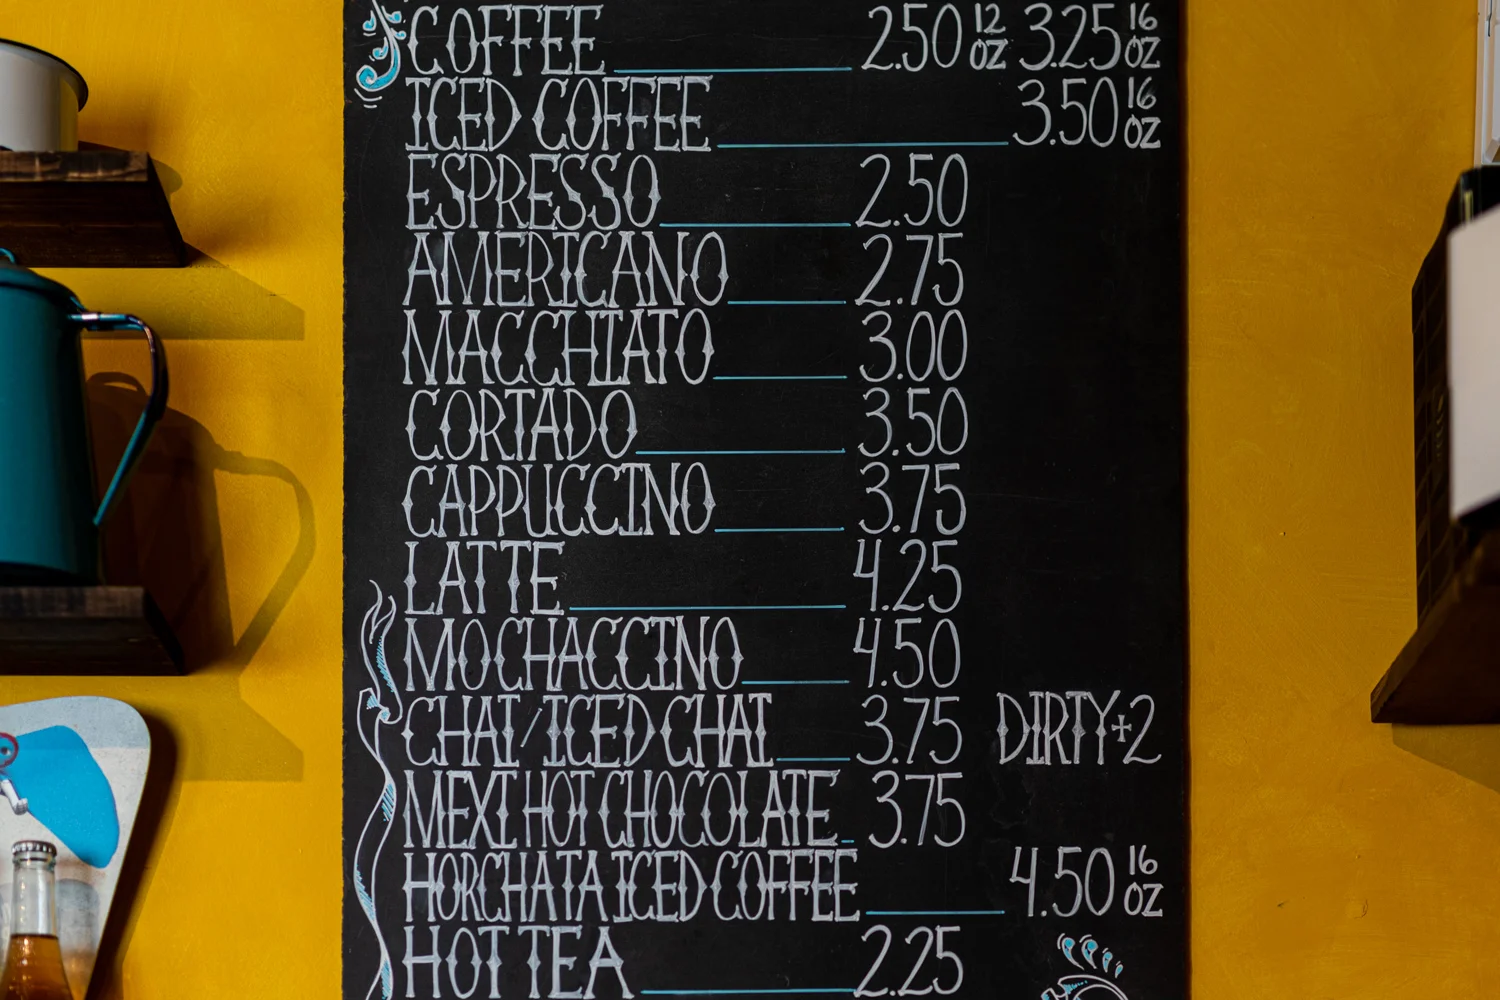 COFFEE 2.50 12 OZ 3.25 16 OZ
ICED COFFEE 3.50 16 OZ
ESPRESSO 2.50
AMERICANO 2.75
MACCHIATO 3.00
CORTADO 3.50
CAPPUCCINO 3.75
LATTE 4.25
MOCHACCINO 4.50
CHAI/ICED CHAI 3.75 DIRTY+2
MEXI HOT CHOCOLATE 3.75
HORCHATA ICED COFFEE 4.50 16 OZ
HOT TEA 2.25